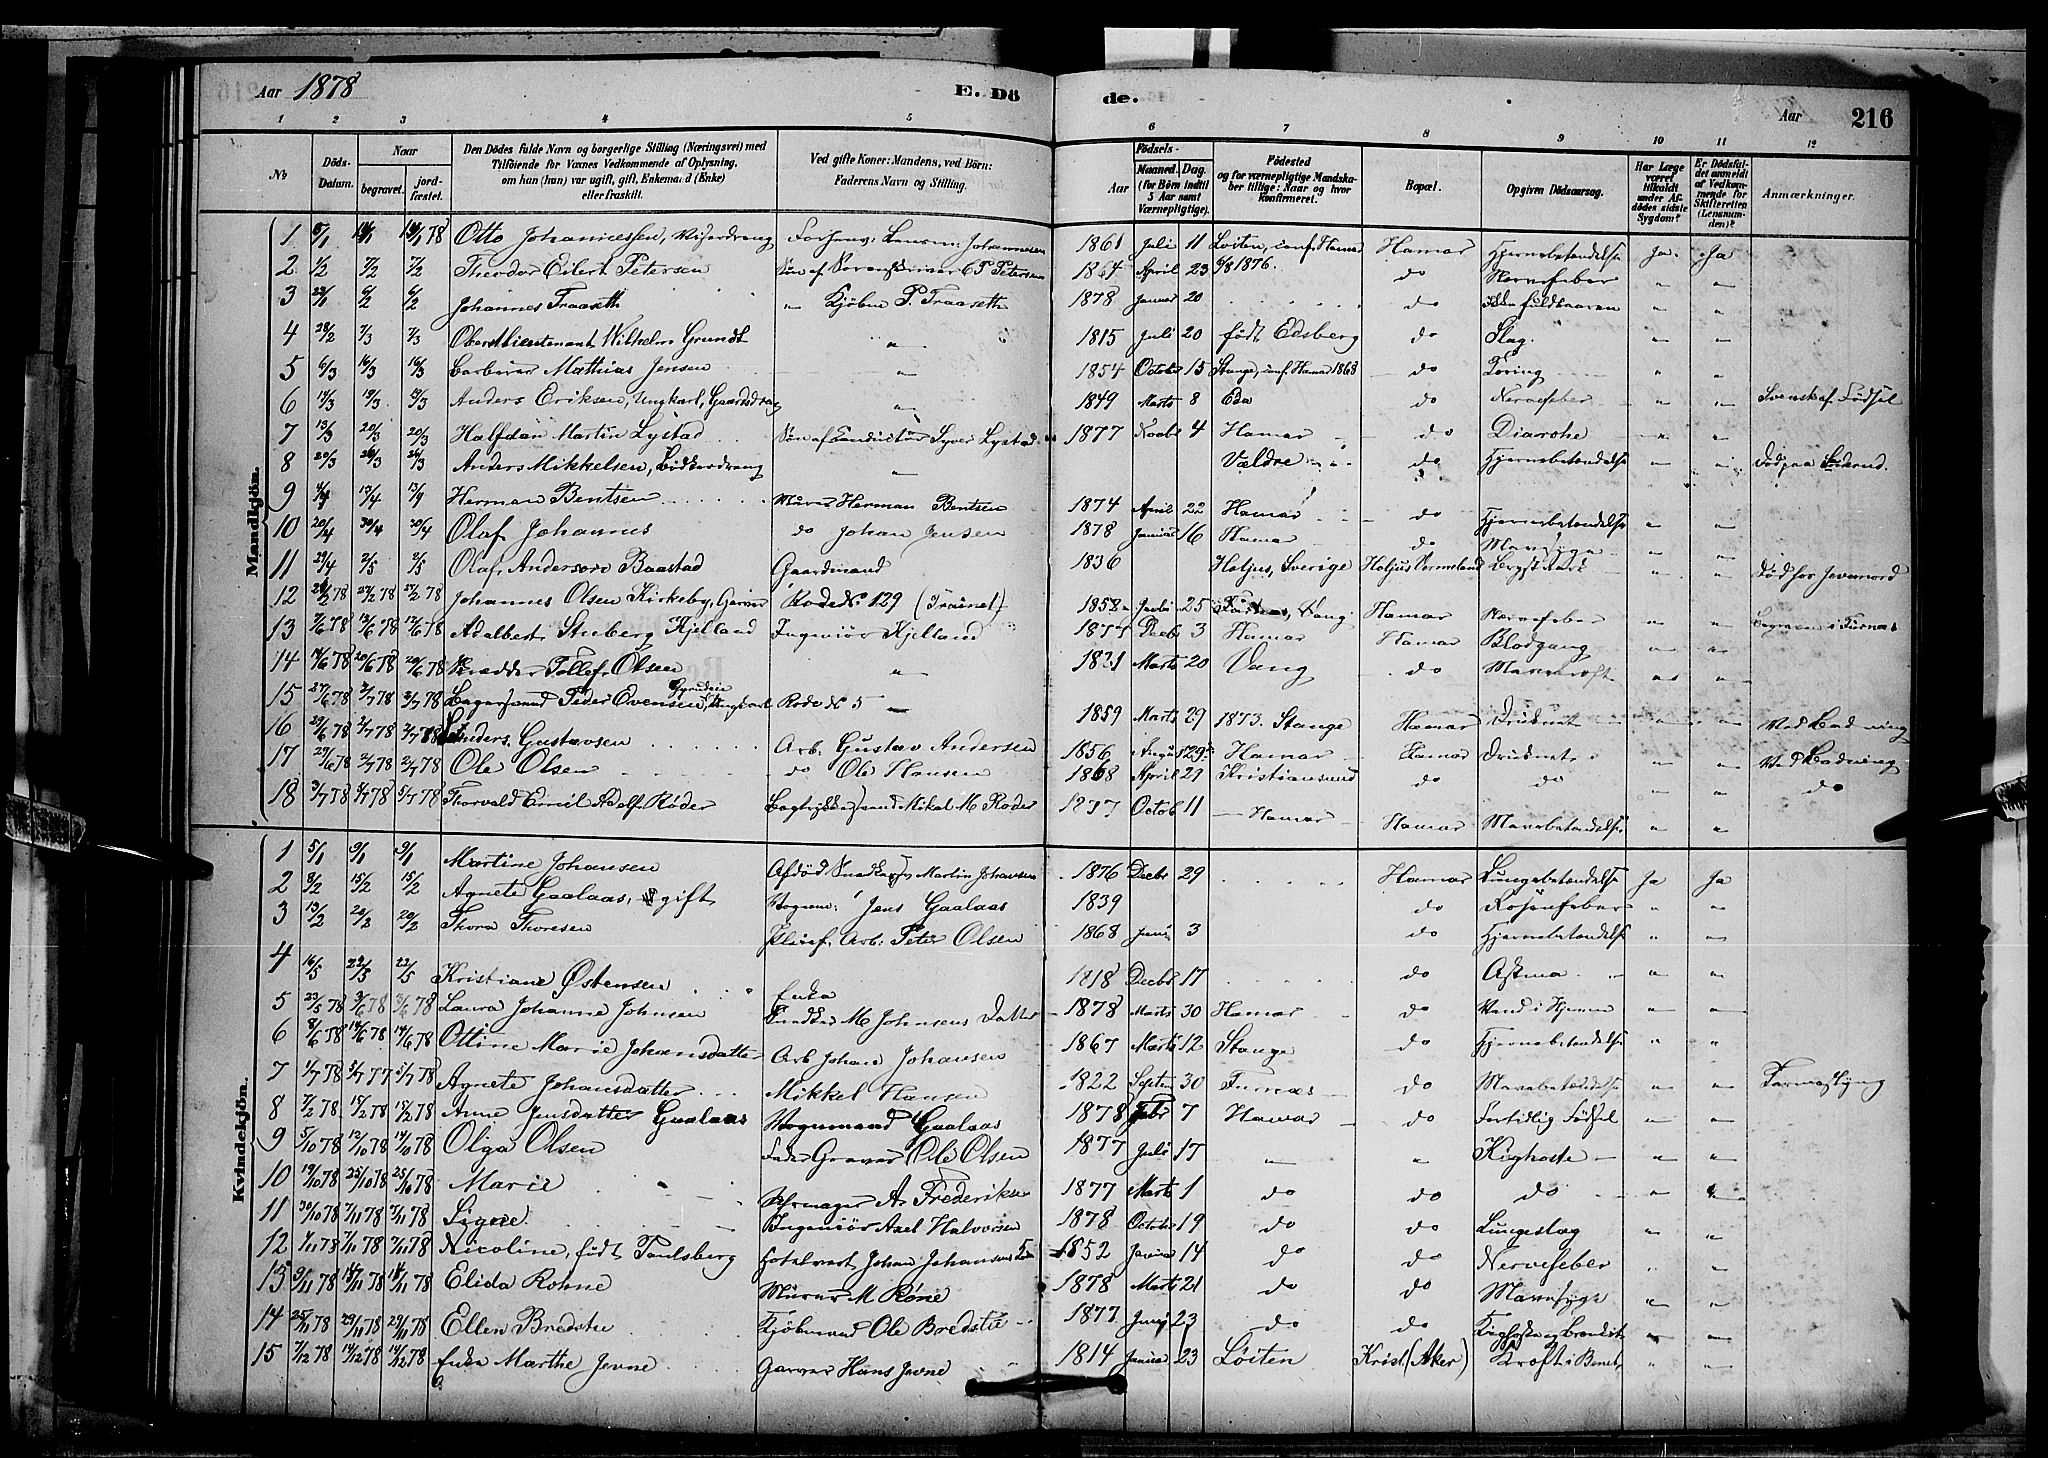 Aar 1878 E. Dö de. Aar 216
1 2 3 4 5 6 7 8 9 10 11 12
No Döds-Datum. Naar begravet. jordfæstet. Den Dödes fulde Navn og borgerlige Stilling (Næringsvei) med Tilföiende for Voxnes Vedkommende af Oplysning, om han (hun) var ugift, gift, Enkemand (Enke) eller fraskilt. Ved gifte Koner: Mandens, ved Börn: Faderens Navn og Stilling. Aar Födsels- Maaned. Dag. (for Börn indtil 5 Aar samt Værnepligtige). Födested og for værnepligtige Mandskaber tillige: Naar og hvor konfirmeret. Bopæl. Opgiven Dödsaarsag. Har Læge været tilkaldt under Afdödes sidste Sygdom? Er Dödsfaldet anmeldt af Vedkommende for Skifteretten (Lensmanden)? Anmærkninger.
Mandkjön.
1 Otto Johannessen, Visergdreng 1861 Juli 11 Løiten, conf. Hamar Hamar Hjernebetændelse Ja Ja
2 1/2 7/2 7/2 Theodor Eilert Petersen Søn af Sorenskriver C P Petersen 1864 April 23 1876. do Nervefeber " "
3 6/2 6/2 Johannes Traaseth " Kjøbm P. Traaseth 1878 Januar 20 do Ikke fuldbaaren " "
4 28/2 7/3 7/3 Oberstlieutenant Wilhelm Grundt " 1815 Juli 20 født Edsberg do Slag. " "
5 6/3 16/3 16/3 Barberer Mathias Jensen " 1854 Octob 15 Stange, conf. Hamar 1868 do Tæring " "
6 Anders Eriksen, Ungkarl, Gaardsdreng " 1849 Marts 8 Eda do Nervefeber " " Svensk af Fødsel
7 13/3 20/3 20/3 Halfdan Martin Lystad Søn af Conductør Syver Lystad 1877 Novbr 4 Hamar do Diarrhe " "
8 20/3 26/3 26/3 Anders Mikkelsen, Bødkerdreng " Vældre do Hjernebetændelse " " Død paa
9 4/4 13/4 Herman Bentsen Murer Herman Bentsen 1874 April 22 Hamar do Hjernebetændelse " "
10 20/4 30/4 30/4 Olaf Johannes do Johan Jensen 1878 Januar 16 Hamar do Mavesyge " "
11 29/4 2/5 2/5 Olaf Anderson Baastad Gaardmand 1836 Holjus, Sverige Holjus Vermeland " " Død for Jevnnord
12 27/2 78 27/2 78 Johannes Olsen Kirkeby, Garver Rode No 129 1852 Juli 25 Vang Hamar Nervefeber " "
13 7/6 78 12/6 78 12/6 78 Adalbert Stuberg Kjelland Ingeniør Kjelland Decbr 3 Hamar Hamar Blodgang " " Begraven i Furnæs
14 14/6 78 20/6 78 20/6 78 Skrædder Tollef Olsen " 1831 Marts 20 Vang do Mavekræft " "
15 27/6 78 2/7 78 2/7 78 Bagersvend Peder Evensen, Ungkarl Rode No 5 1859 Marts 29 1873. Stange Hamar Druknet " " Ved Badning
16 29/6 78 2/7 78 2/7 78 Anders Gustavsen Arb. Gustav Andersen 1856 August 29 Hamar Hamar Druknet " " Ved Badning
17 29/6 78 2/7 78 2/7 78 Ole Olsen do Ole Hansen 1868 April 29 Kristiansund do do " " do
18 3/7 78 5/7 78 5/7 78 Thorvald Emil Adolf Røder Bogtrykkersvend Mikal M. Røder Octob 11 Hamar Hamar Mavebetændelse " "
Kvindekjön.
1 5/1 9/1 9/1 Martine Johansen Afdød Snedkersv Martin Johansen 1876 Decbr 29 Hamar Lungebetændelse Ja Ja
2 8/2 15/2 15/2 Agnete Gaalaas, gift Vognm: Jens Gaalaas 1839 do Rosenfeber " "
3 13/2 20/2 20/2 Thora Thoresen Pleief. Arb: Peter Olsen 1868 Janu 3 do Hjernebetændelse " "
4 16/5 22/5 22/5 Kristiane Østensen Enke 1818 Decbr 17 do Astma " "
5 23/5 78 3/6 78 3/6 78 Laura Johanne Johnsen Snedker M. Johnsens Datter 1878 Marts 30 Hamar do Vand i Hjernen " "
6 8/6 78 14/6 78 14/6 78 Ottine Marie Johansdatter Arb Johan Johansen 1867 Marts 12 Stange do Hjernebetændelse " "
7 1/7 78 5/7 77 5/7 78 Agnete Johansdatter Mikkel Hansen 1822 Septem 30 Furnæs do Mavebetændelse " " Tarmeslyng
8 7/2 78 15/2 78 15/2 78 Anne Jensdatter Gaalaas Vognmand Gaalaas 1878 Febr 7 Hamar do Fortidlig Fødsel " "
9 5/10 78 12/10 78 Olga Olsen Fader Graver Ole Olsen 1877 Juli 17 " " Kighoste " "
10 19/10 78 25/10 78 25/10 78 Marie Uhrmager A. Frederiksen 1877 Marts 1 do do do " "
11 30/10 78 7/11 78 7/11 78 Signe Ingeniør Axel Halvorsen 1878 October 19 do do Lungeslag " "
12 1/11 78 7/11 78 7/11 78 Nicoline, født Paulsberg Hotelvært Johan Johansens 1852 Januar 14 do do Nervefeber " "
13 9/11 78 14/11 78 14/11 78 Elida Rohne Murer M Röne 1878 Marts 21 do do Mavesyge " "
14 25/11 78 29/11 78 29/11 78 Ellen Bredstie Kjøbmand Ole Bredstie 1877 Juni 23 do do Kighoste og " "
15 7/12 78 14/12 78 14/12 78 Enke Marthe Jevne Garver Hans Jevne 1814 Januar 23 Löiten Krist. (Aker) Kræft i Benet " "